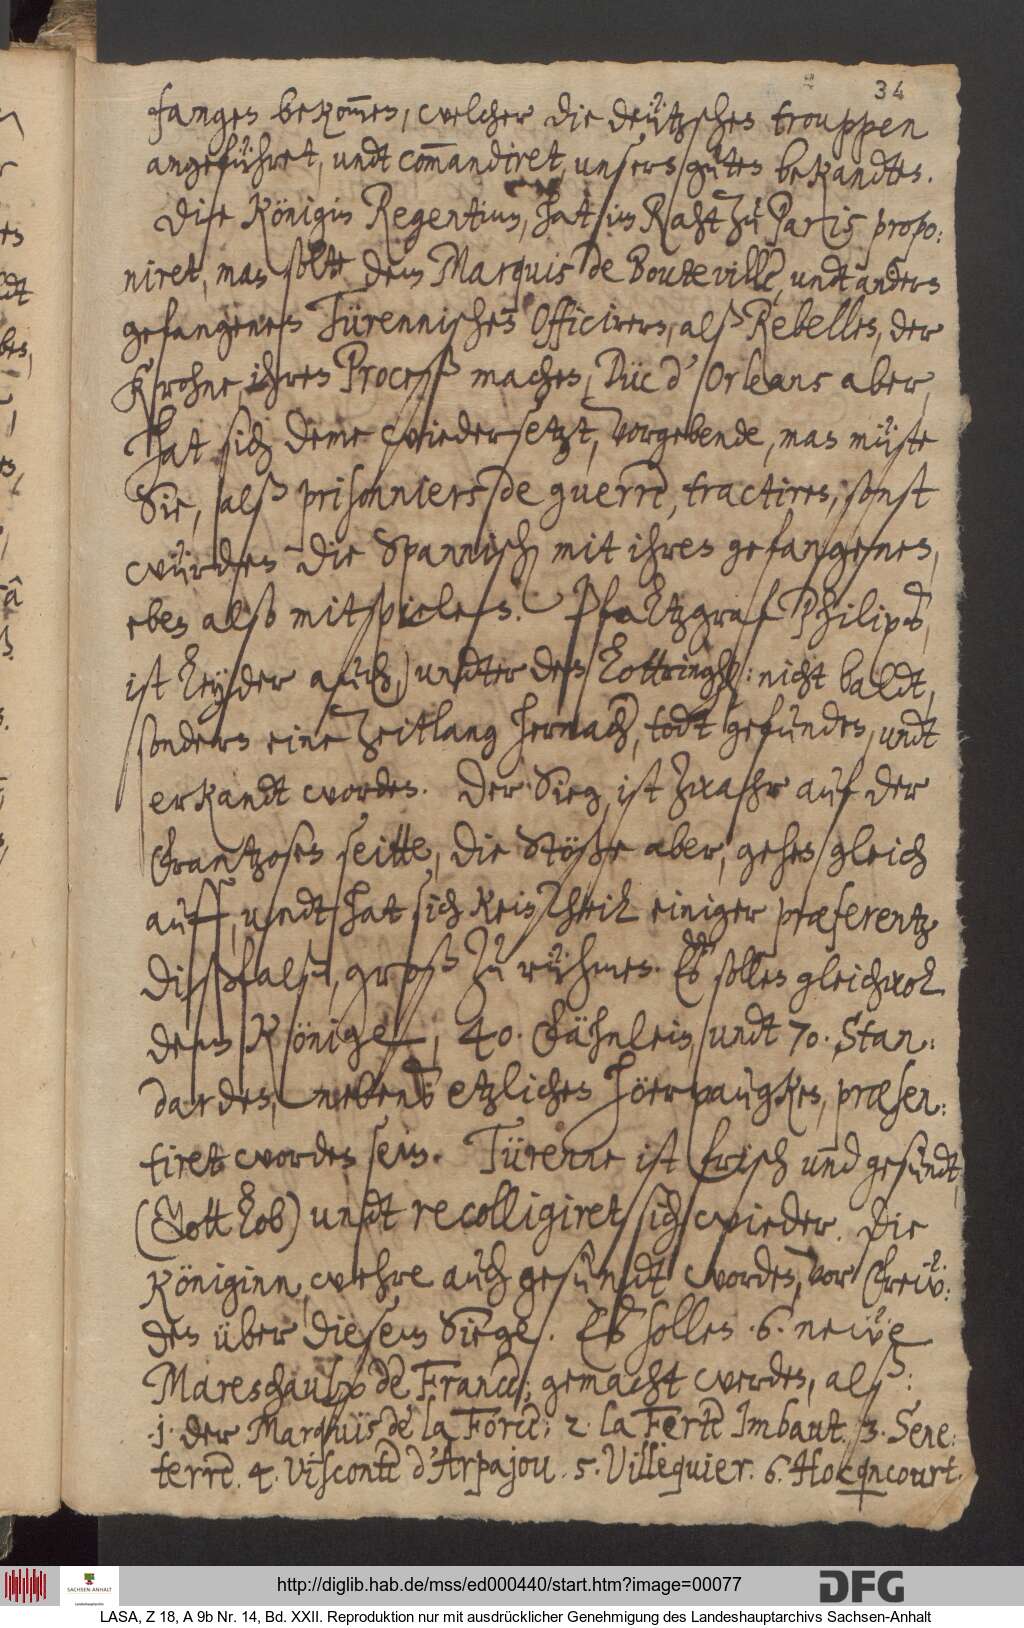 34
fangen bekom̅en, welcher die deützschen trouppen
angeführet, undt com̅andiret, unsern gůten bekandten.
Die Königin Regentinn, hat im Raht zů Paris propo:
niret, man sollte dem Marquis de Bouteville, undt andern
gefangenen Türennischen Officirern, alß Rebellen, der
Krohne, ihren Proceß machen, Düc d'Orleans aber,
hat sich deme wiedersetzt, vorgebende, man müste
Sie, alß prisonniers de guerre, tractiren, sonst
würden die Spannisch mit ihren gefangenen,
eben also mitspielen. Pfaltzgraf Philips,
ist leyder aůch, undter den Lottringh: nicht baldt,
sondern eine zeitlang hernach, todt gefůnden, undt
erkandt worden. Der Sieg ist zwahr auf der
Frantzosen seitte, die Stöße aber, gehen gleich
auff, undt hat sich kein theil einiger præferentz
dißfalß, groß zů rühmen. Eß sollen gleichwol
dem Könige, 40. Fähnlein, undt 70. Stan:
darden, nebenst etzlichen Höerpaůgken, præsen:
tiret worden sein. Türenne ist frisch und gesůndt,
(Gott lob) undt recolligiret sich wieder. Die
Königinn, wehre aůch gesůndt worden, vor Freü:
den über diesem Siege. Eß sollen .6. neüe
Mareschaulx de France, gemacht werden, alß:
.1. der Marquis de la Force; 2. la Ferte Imbaut. 3. Sene:
terre. 4. Visconte d'Arpajou. 5. Villequier. 6. Hocqncourt.
http://diglib.hab.de/mss/ed000440/start.htm?image=00077
DFG
SACHSEN-ANHALT
Landeshauptarchiv
LASA, Z 18, A 9b Nr. 14, Bd. XXII. Reproduktion nur mit ausdrücklicher Genehmigung des Landeshauptarchivs Sachsen-Anhalt